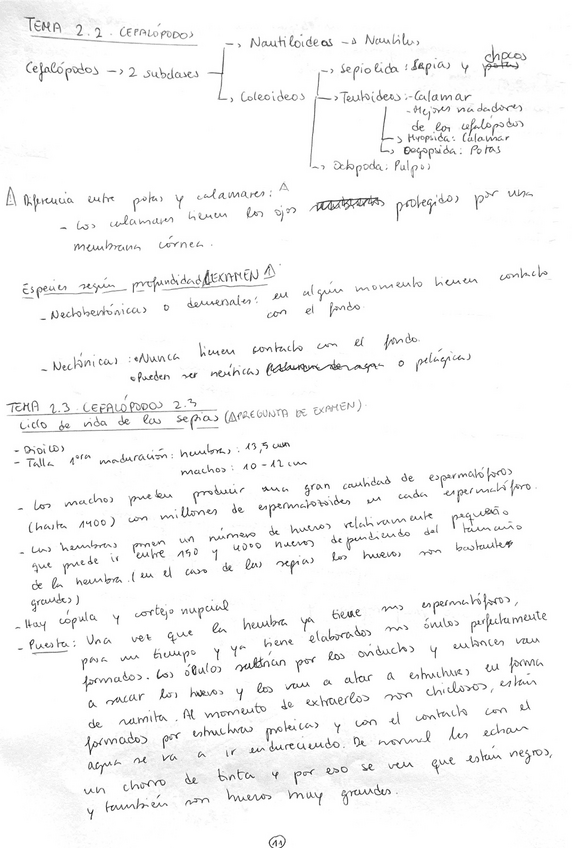 TEMA 2.2. CEFALÓPODOS
Cefalópodos -> 2 subclases
-> Nautiloideos -> Nautilus
-> Coleoideos
-> Sepiolida: Sepias y chocos
-> Teutoideos: - Calamar
- Mejores nadadores
de los cefalópodos
-> Myopsida: Calamar
-> Oegopsida: Potas
-> Octopoda: Pulpos
⚠ Diferencia entre potas y calamares: ⚠
- Los calamares tienen los ojos protegidos por una
membrana córnea.
Especies según profundidad ¡EXAMEN!
- Nectobentónicas o demersales: en algún momento tienen contacto
con el fondo
- Nectónicas: • Nunca tienen contacto con el fondo.
• Pueden ser neríticas o pelágicas
TEMA 2.3 CEFALÓPODOS 2.3
Ciclo de vida de las sepias (⚠ PREGUNTA DE EXAMEN)
- Dioicos
- Talla 1era maduración: hembras: 13,5 cm
machos: 10 - 12 cm
- Los machos pueden producir una gran cantidad de espermatóforos
(hasta 1400) con millones de espermatozoides en cada espermatóforo.
- Las hembras ponen un número de huevos relativamente pequeño
que puede ir entre 150 y 4000 huevos dependiendo del tamaño
de la hembra. (en el caso de las sepias los huevos son bastante
grandes)
- Hay cópula y cortejo nupcial
- Puesta: Una vez que la hembra ya tiene sus espermatóforos,
pasa un tiempo y ya tiene elaborados sus óvulos perfectamente
formados. Los óvulos saldrían por los oviductos y entonces van
a sacar los huevos y los van a atar a estructuras en forma
de ramita. Al momento de extraerlos son chiclosos, están
formados por estructuras proteicas y con el contacto con el
agua se va a ir endureciendo. De normal les echan
un chorro de tinta y por eso se ven que están negros,
y también son huevos muy grandes.
11